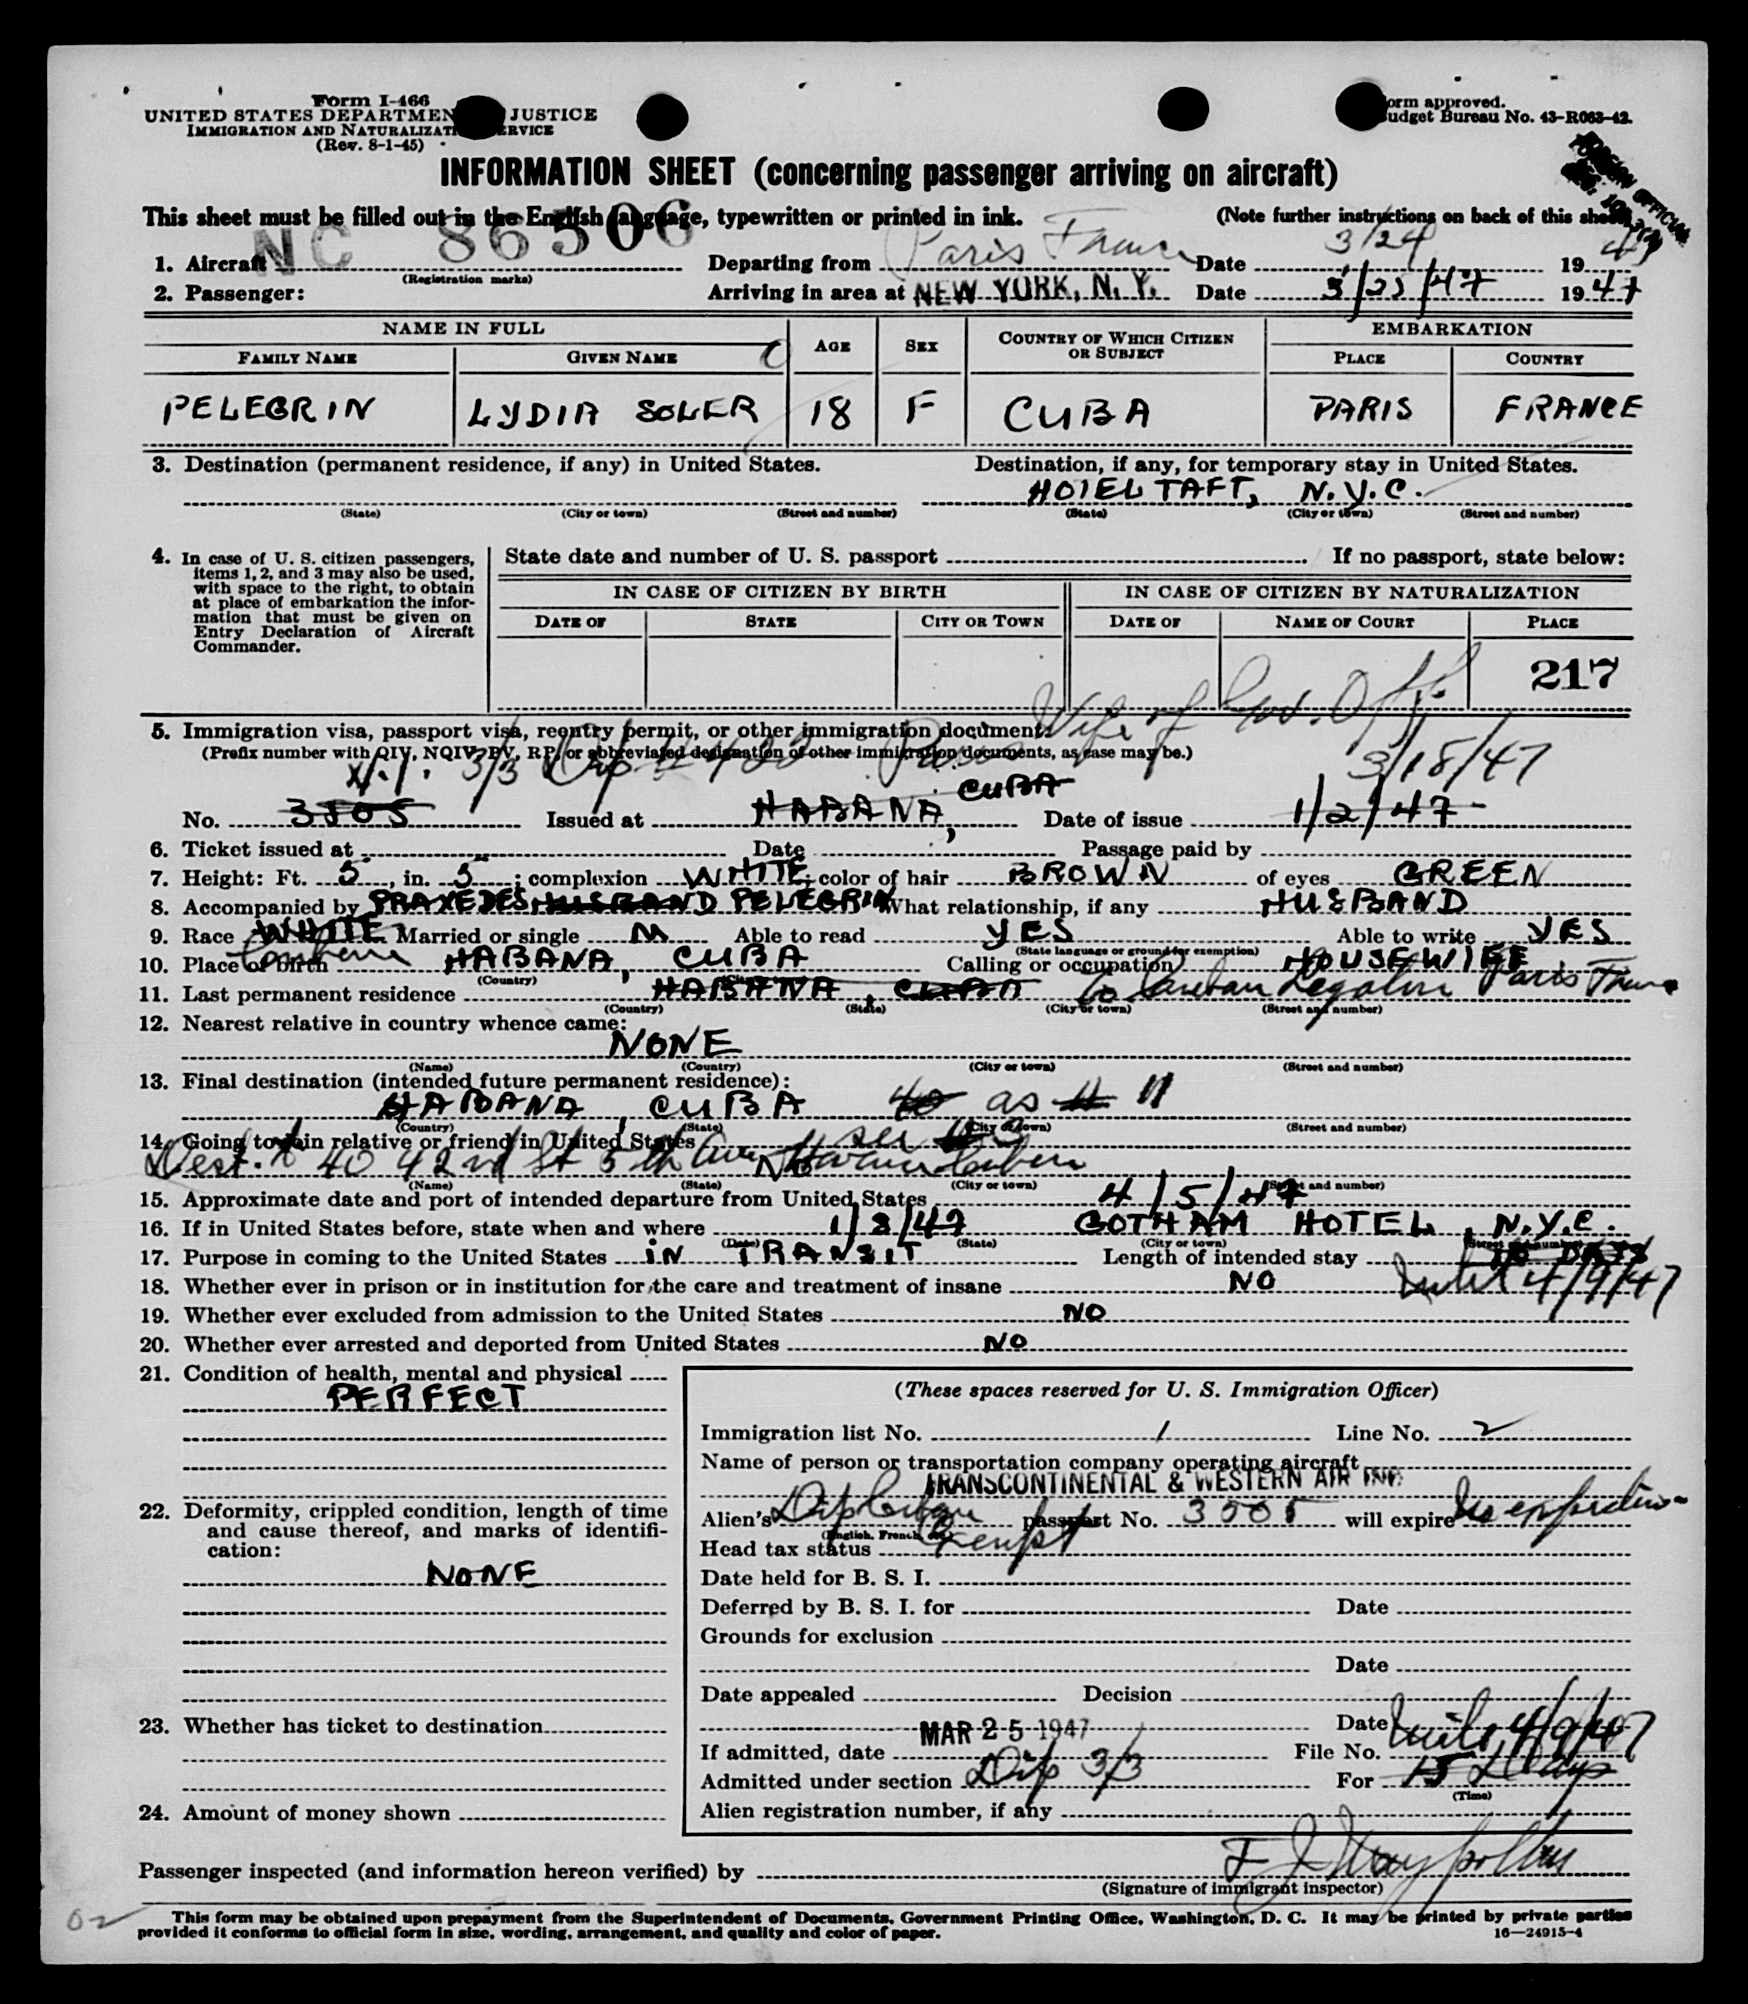 Form I-466
UNITED STATES DEPARTMEN JUSTICE
IMMIGRATION AND NATURALIZATI ERVICE
(Rev. 8-1-45)
orm approved.
udget Bureau No. 43-R063-42.
INFORMATION SHEET (concerning passenger arriving on aircraft)
This sheet must be filled out in the English language, typewritten or printed in ink. (Note further instructions on back of this sheet
1. Aircraft NC 86506 Departing from Paris France Date 3/24 19 47
(Registration marks)
2. Passenger: Arriving in area at NEW YORK, N. Y. Date 3/25/47 19 47
NAME IN FULL AGE SEX COUNTRY OF WHICH CITIZEN OR SUBJECT EMBARKATION
FAMILY NAME GIVEN NAME PLACE COUNTRY
PELEGRIN LYDIA SOLER 18 F CUBA PARIS FRANCE
3. Destination (permanent residence, if any) in United States. Destination, if any, for temporary stay in United States.
HOTEL TAFT, N.Y.C.
(State) (City or town) (Street and number) (State) (City or town) (Street and number)
4. In case of U. S. citizen passengers, items 1, 2, and 3 may also be used, with space to the right, to obtain at place of embarkation the information that must be given on Entry Declaration of Aircraft Commander.
State date and number of U. S. passport If no passport, state below:
IN CASE OF CITIZEN BY BIRTH IN CASE OF CITIZEN BY NATURALIZATION
DATE OF STATE CITY OR TOWN DATE OF NAME OF COURT PLACE
217
Wife of Gov. Off.
5. Immigration visa, passport visa, reentry permit, or other immigration document:
(Prefix number with QIV, NQIV, PV, RP, or abbreviated designation of other immigration documents, as case may be.)
3/3 Dip Paris 3/18/47
No. 3505 Issued at HABANA, CUBA Date of issue 1/2/47
6. Ticket issued at Date Passage paid by
7. Height: Ft. 5, in. 5; complexion WHITE; color of hair BROWN of eyes GREEN
8. Accompanied by PRAXEDES HUSBAND PELEGRIN What relationship, if any HUSBAND
9. Race WHITE Married or single M Able to read YES Able to write YES
(State language or ground for exemption)
10. Place of birth HABANA, CUBA Calling or occupation HOUSEWIFE
(Country) (City)
11. Last permanent residence HABANA, CUBA Co Cuban Legation Paris France
(Country) (State) (City or town) (Street and number)
12. Nearest relative in country whence came:
NONE
(Name) (Country) (City or town) (Street and number)
13. Final destination (intended future permanent residence):
HABANA, CUBA as 11
(Country) (State) (City or town) (Street and number)
14. Going to join relative or friend in United States
Dest. 40 42nd St 5th Ave
(Name) (State) (City or town) (Street and number)
15. Approximate date and port of intended departure from United States 4/5/47
16. If in United States before, state when and where 1/3/47 GOTHAM HOTEL, N.Y.C.
(Date) (State) (City or town) (Street and number)
17. Purpose in coming to the United States IN TRANSIT Length of intended stay 10 DAYS
until 4/9/47
18. Whether ever in prison or in institution for the care and treatment of insane NO
19. Whether ever excluded from admission to the United States NO
20. Whether ever arrested and deported from United States NO
21. Condition of health, mental and physical
PERFECT
22. Deformity, crippled condition, length of time and cause thereof, and marks of identification:
NONE
23. Whether has ticket to destination
24. Amount of money shown
(These spaces reserved for U. S. Immigration Officer)
Immigration list No. 1 Line No. 2
Name of person or transportation company operating aircraft
TRANSCONTINENTAL & WESTERN AIR INC.
Alien's Dip Cuban passport No. 3505 will expire No expiration
(English, French, etc.)
Head tax status Exempt
Date held for B. S. I.
Deferred by B. S. I. for Date
Grounds for exclusion
Date
Date appealed Decision
Date until 4/9/47
If admitted, date MAR 25 1947 File No.
Admitted under section Dip 3/3 For 15 Days
(Time)
Alien registration number, if any
Passenger inspected (and information hereon verified) by
(Signature of immigrant inspector)
02
This form may be obtained upon prepayment from the Superintendent of Documents, Government Printing Office, Washington, D. C. It may be printed by private parties
provided it conforms to official form in size, wording, arrangement, and quality and color of paper. 16—24915-4